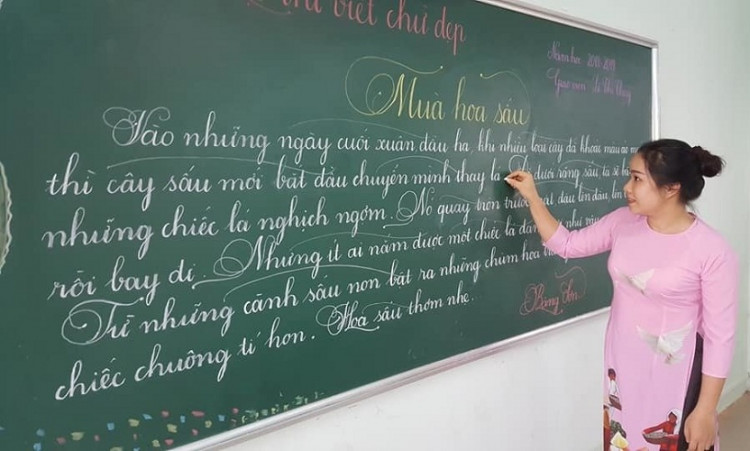 viết chữ đẹp
Năm học 2018-2019
Giáo viên
Mùa hoa sấu
Vào những ngày cuối xuân đầu hạ, khi nhiều loài cây đã khoác màu áo m
thì cây sấu mới bắt đầu chuyển mình thay lá. dưới rặng sấu, ta sẽ
những chiếc lá nghịch ngợm. Nó quay tròn trước mặt, đậu lên đầu, lên
rồi bay đi. Nhưng ít ai nắm được một chiếc lá như
Từ những cành sấu non bật ra những chùm hoa
chiếc chuông tí hon. Hoa sấu thơm nhẹ.
Băng Sơn